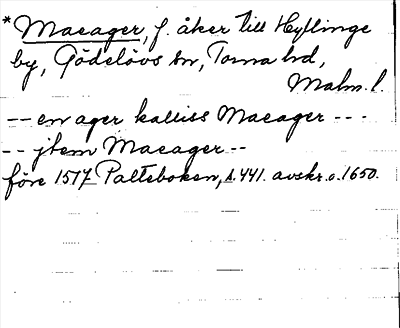 *Maeager, f. åker till Hyllinge
by, Gödelövs sn, Torna hd,
Malm. l.
-- en ager kalliss Maeager ---
-- jtem Maeager --
före 1517 Palteboken, s. 441. avskr. o. 1650.